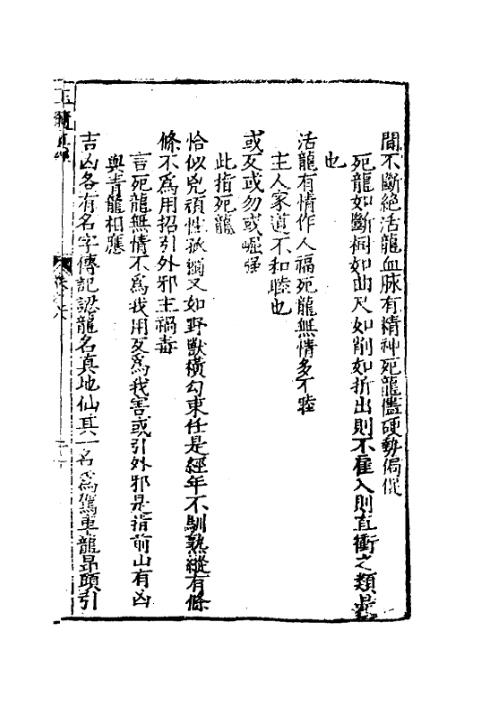 間不斷絕活龍血脉有精神死龍儘硬勢侷促
死龍如斷梢如曲尺如削如折出則不雇入則直衝之類是
也
活龍有情作人福死龍無情多不睦
主人家道不和睦也
或反或勿或崛强
此指死龍
恰似兇頑性狠獨又如野獸橫勾東任是經年不馴熟縱有條
條不爲用招引外邪主禍毒
言死龍無情不爲我用反爲我害或引外邪是指前山有凶
與青龍相應
吉凶各有名字傳記認龍名真地仙其一名爲駕車龍昂頭引
玉髓真經
卷之六